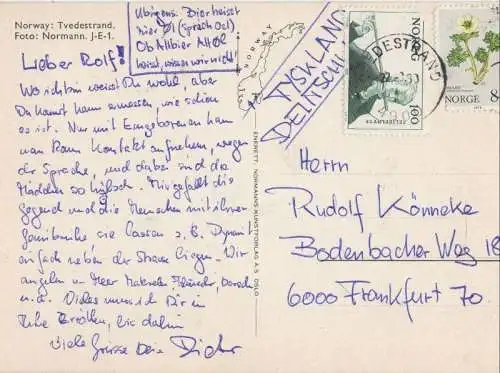 Norway: Tvedestrand.
Foto: Normann. J-E-1.
Übrigens: Bier heisst
hier Öl (sprich Oel)
Ob Altbier Alt Öl
heisst, wissen wir nicht!
NORWAY
Lieber Rolf!
Wo ich bin weisst Du wohl, aber
Du kannst kaum ermessen, wie schön
es ist. Nur mit Eingeborenen kann
man kaum Kontakt aufnehmen, wegen
der Sprache, und dabei sind die
Mädchen so hübsch. Mir gefällt die
Gegend und die Menschen mit ihrer
Gemütsruhe wie Cassius z.B. Dynamit
einfach neben der Strasse liegen. Wir
angeln im Meer Makrelen, Flunder, Dorsche
u.a. Vieles muss ich Dir in
Ruhe erzählen, bis dahin
viele Grüsse Dein Dieter
ENERETT NORMANNS KUNSTFORLAG A.S OSLO
TYSKLAND
DEUTSCHL
NORGE
100
TVEDESTRAND
NORGE
8
Herrn
Rudolf Könneke
Bodenbacher Weg 18
6000 Frankfurt 70